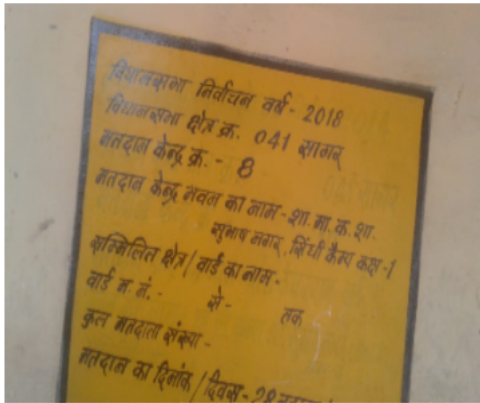 विधानसभा निर्वाचन वर्ष - 2018
विधानसभा क्षेत्र क्र. 041 सागर
मतदान केन्द्र क्र. - 8
मतदान केन्द्र भवन का नाम - शा. मा. क. शा.
सुभाष नगर, सिंधी कैम्प कक्ष -1
सम्मिलित क्षेत्र / वार्ड का नाम -
वार्ड म. नं. - से - तक
कुल मतदाता संख्या -
मतदान का दिनांक / दिवस - 28